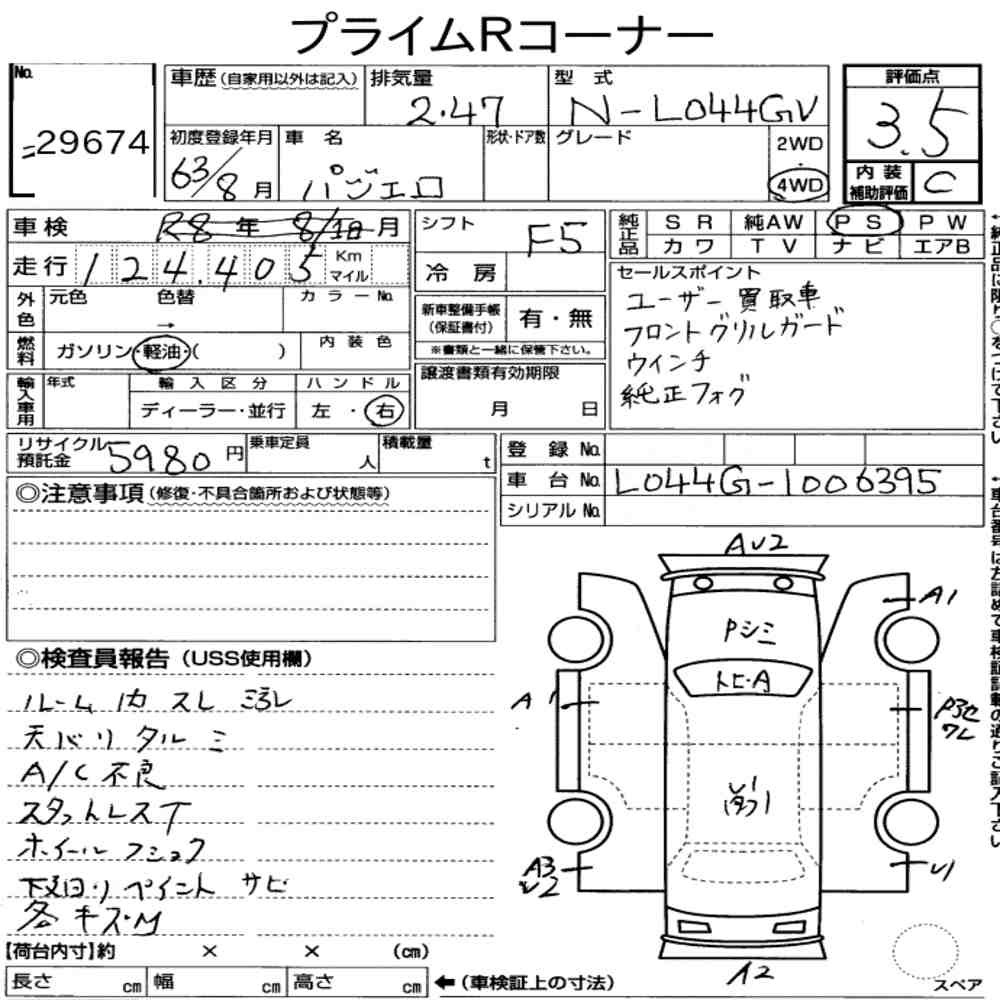 プライムRコーナー
No.
29674
車歴 (自家用以外は記入)
排気量
2.47
型 式
N-L044GV
評価点
3.5
初度登録年月
63/8 月
車 名
パジェロ
形状・ドア数
グレード
2WD
・
4WD
内装
補助評価
C
車検
R8 年 8/ 月
シフト
F5
純正品
SR 純AW PS PW
カワ TV ナビ エアB
走行
124,405
Km
マイル
冷房
セールスポイント
ユーザー買取車
フロントグリルガード
ウインチ
純正フォグ
外色
元色 色替 カラーNo.
→
新車整備手帳
(保証書付)
有・無
※書類と一緒に保管下さい。
燃料
ガソリン・軽油・( )
内装色
輸入車用
年式
輸入区分
ディーラー・並行
ハンドル
左・右
譲渡書類有効期限
月 日
リサイクル
預託金
5980 円
乗車定員
人
積載量
t
登録 No.
車台 No.
L044G-1006395
シリアル No.
◎注意事項 (修復・不具合箇所および状態等)
◎検査員報告 (USS使用欄)
ルーム内 スレ ヨゴレ
天バリ タルミ
A/C不良
スタットレスT
ホイール フショク
下廻り ペイント サビ
各キズ・M
AU2
A1
Pシミ
トビ・A
A1
ワレ
A3
U2
U1
A2
【荷台内寸】約 × × (cm)
長さ cm
幅 cm
高さ cm
←(車検証上の寸法)
スペア
←純正品に限り○をつけて下さい
←車台番号は左詰めで車検証記載の通りご記入下さい